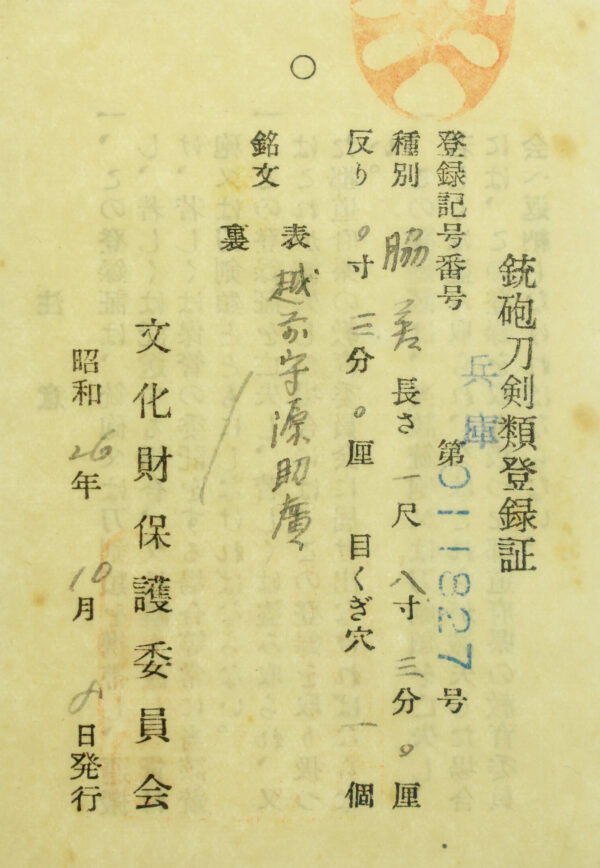 銃砲刀剣類登録証
登録記号番号 兵庫 第011827号
種別 脇差 長さ 一尺八寸三分〇厘
反り 〇寸三分〇厘 目くぎ穴 一個
銘文 表 越前守源助廣
裏
文化財保護委員会
昭和26年10月8日発行